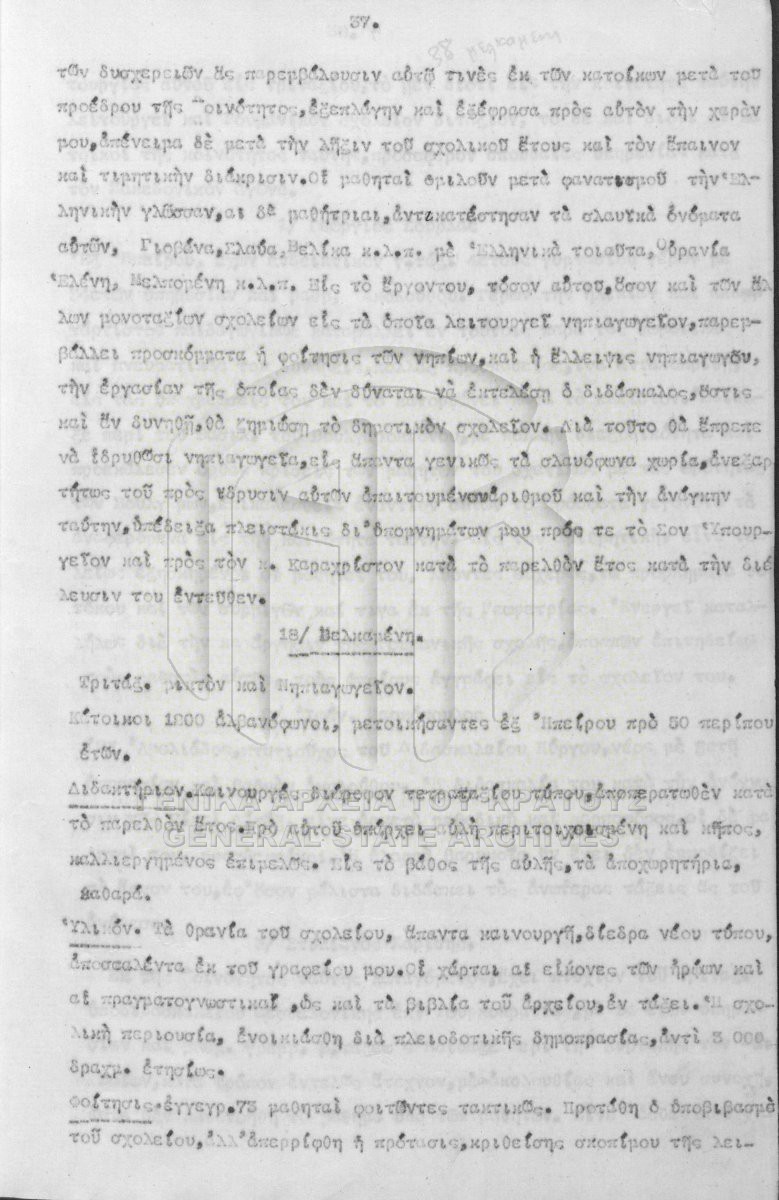 37.
τῶν δυσχερειῶν ἃς παρεμβάλουσιν αὐτῷ τινὲς ἐκ τῶν κατοίκων μετὰ τοῦ
προέδρου τῆς Κοινότητος,ἐξεπλάγην καὶ ἐξέφρασα πρὸς αὐτὸν τὴν χαρὰν
μου,ἀπένειμα δὲ μετὰ τὴν λῆξιν τοῦ σχολικοῦ ἔτους καὶ τὸν ἔπαινον
καὶ τιμητικὴν διάκρισιν.Οἱ μαθηταὶ ὁμιλοῦν μετὰ φανατισμοῦ τὴν Ἑλ-
ληνικὴν γλῶσσαν,αἱ δὲ μαθήτριαι,ἀντικατέστησαν τὰ σλαυϊκὰ ὀνόματα
αὐτῶν, Γιοβάνα,Σλαύα,Βελίκα κ.λ.π. μὲ Ἑλληνικὰ τοιαῦτα,Οὐρανία
Ἑλένη, Μελπομένη κ.λ.π. Εἰς τὸ ἔργοντου, τόσον αὐτοῦ,ὅσον καὶ τῶν ἄλ
λων μονοταξίων σχολείων εἰς τὰ ὁποῖα λειτουργεῖ νηπιαγωγεῖον,παρεμ-
βάλλει προσκόμματα ἡ φοίτησις τῶν νηπίων,καὶ ἡ ἔλλειψις νηπιαγωγοῦ,
τὴν ἐργασίαν τῆς ὁποίας δὲν δύναται νὰ ἐκτελέσῃ ὁ διδάσκαλος,ὅστις
καὶ ἂν δυνηθῇ,θὰ ζημιώσῃ τὸ δημοτικὸν σχολεῖον. Διὰ τοῦτο θὰ ἔπρεπε
νὰ ἱδρυθῶσι νηπιαγωγεῖα,εἰς ἅπαντα γενικῶς τὰ σλαυόφωνα χωρία,ἀνεξαρ
τήτως τοῦ πρὸς ἵδρυσιν αὐτῶν ἀπαιτουμένουἀριθμοῦ καὶ τὴν ἀνάγκην
ταύτην,ὑπέδειξα πλειστάκις δι' ὑπομνημάτων μου πρός τε τὸ Σον Ὑπουρ-
γεῖον καὶ πρὸς τὸν κ. Καραχρίστον κατὰ τὸ παρελθὸν ἔτος κατὰ τὴν διέ
λευσιν του ἐντεῦθεν.
18/ Βελκαμένη.
Τριτάξ. μικτὸν καὶ Νηπιαγωγεῖον.
Κάτοικοι 1200 ἀλβανόφωνοι, μετοικήσαντες ἐξ Ἠπείρου πρὸ 50 περίπου
ἐτῶν.
Διδακτήριον.Καινουργὲς διώροφον τετραταξίου τύπου,ἀποπερατωθὲν κατὰ
τὸ παρελθὸν ἔτος.Πρὸ αὐτοῦ ὑπάρχει αὐλὴ περιτοιχισμένη καὶ κῆπος,
καλλιεργημένος ἐπιμελῶς. Εἰς τὸ βάθος τῆς αὐλῆς,τὰ ἀποχωρητήρια,
καθαρά.
Ὑλικόν. Τὰ θρανία τοῦ σχολείου, ἅπαντα καινουργῆ,δίεδρα νέου τύπου,
ἀποσταλέντα ἐκ τοῦ γραφείου μου.Οἱ χάρται αἱ εἰκόνες τῶν ἡρώων καὶ
αἱ πραγματογνωστικαί ,ὡς καὶ τὰ βιβλία τοῦ ἀρχείου,ἐν τάξει.Ἡ σχο-
λικὴ περιουσία, ἐνοικιάσθη διὰ πλειοδοτικῆς δημοπρασίας,ἀντὶ 3 000
δραχμ. ἐτησίως.
Φοίτησις.ἐγγεγρ.73 μαθηταὶ φοιτῶντες τακτικῶς. Προτάθη ὁ ὑποβιβασμὸ
τοῦ σχολείου,ἀλλ' ἀπερρίφθη ἡ πρότασις,κριθείσης σκοπίμου τῆς λει-
ΓΕΝΙΚΑ ΑΡΧΕΙΑ ΤΟΥ ΚΡΑΤΟΥΣ
GENERAL STATE ARCHIVES